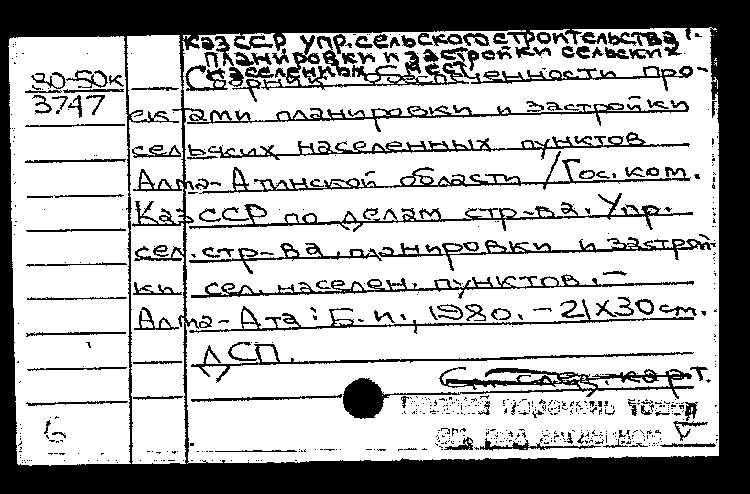 КазССР Упр. сельского строительства,
планировки и застройки сельских
населенных мест
80-50к
3747
Сборник обеспеченности про-
ектами планировки и застройки
сельских населенных пунктов
Алма-Атинской области / Гос. ком.
КазССР по делам стр-ва. Упр.
сел. стр-ва, планировки и застрой-
ки сел. населен. пунктов. –
Алма-Ата: Б.и., 1980. – 21х30 см.
ДСП.
См. след. карт.
Полный перечень томов
см. под заглавием
6